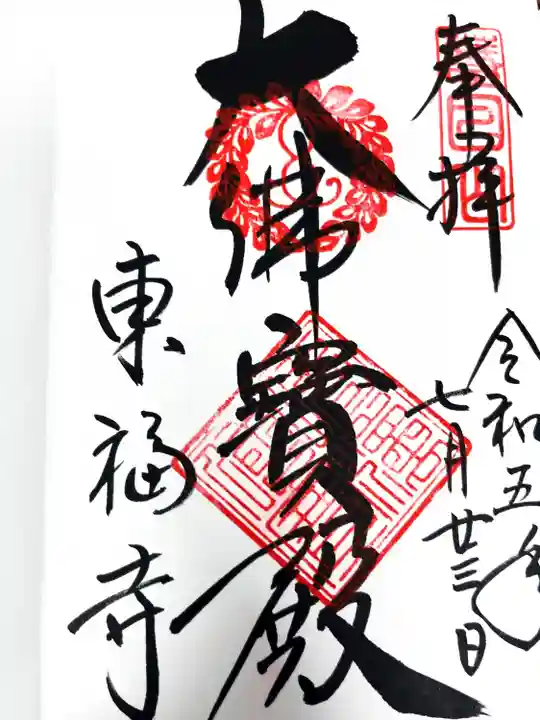 奉拝
令和五年
七月廿三日
大佛寶殿
東福寺